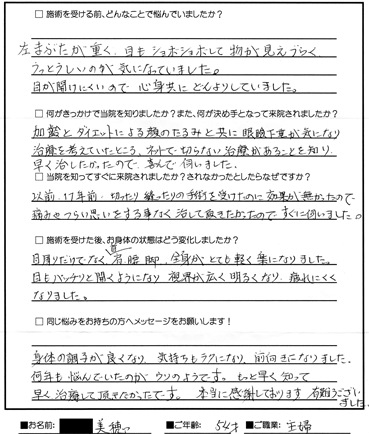 □ 施術を受ける前、どんなことで悩んでいましたか?
左まぶたが重く、目もショボショボして物が見えづらく、
うっとうしいのが気になっていました。
目が開けにくいので 心身共に どんよりしていました。
□ 何がきっかけで当院を知りましたか?また、何が決め手となって来院されましたか?
加齢とダイエットによる顔のたるみと共に眼瞼下垂が気になり
治療を考えていたところ、ネットで切らない治療があることを知り、
早く治したかったので、喜んで伺いました。
□ 当院を知ってすぐに来院されましたか?されなかったとしたらなぜですか?
以前、17年前、切ったり縫ったりの手術を受けたのに効果が無かったので
痛みやつらい思いをする事なく治して頂きたかったので すぐに伺いました。
□ 施術を受けた後、お身体の状態はどう変化しましたか?
目周りだけでなく、首 肩 腰 脚、全身がとても軽く楽になりました。
目もパッチリと開くようになり 視界が広く明るくなり、疲れにくく
なりました。
□ 同じ悩みをお持ちの方へメッセージをお願いします!
身体の調子が良くなり、気持ちもラクになり、前向きになりました。
何年も悩んでいたのがウソのようです。もっと早く知って
早く治療して頂きたかったです。 本当に感謝しております 有難うござい
ました。
■お名前: 美穂 ■ご年齢: 54才 ■ご職業: 主婦